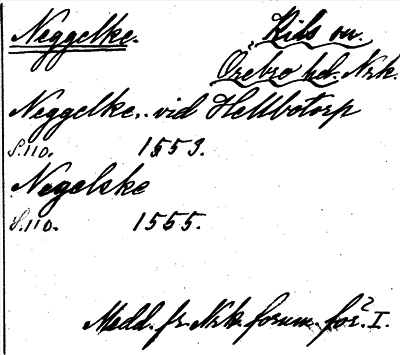 Neggelke. Kils sn.
Örebro hd. Nrk.
Neggelke.. vid Hellbotorp
S.110. 1553.
Negelske
S.110. 1555.
Medd. fr. Nrk. fornm. för. I.